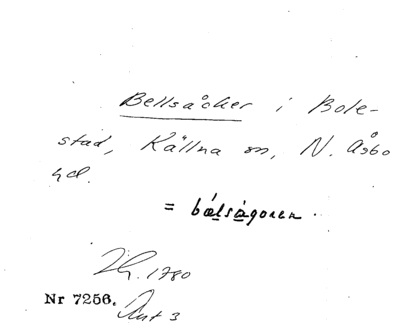 Bellsåcker i Bole-
stad, Källna sn, N. Åsbo
hd.
= bálságoren.
Lh. 1780
Nr 7256.
Ant 3